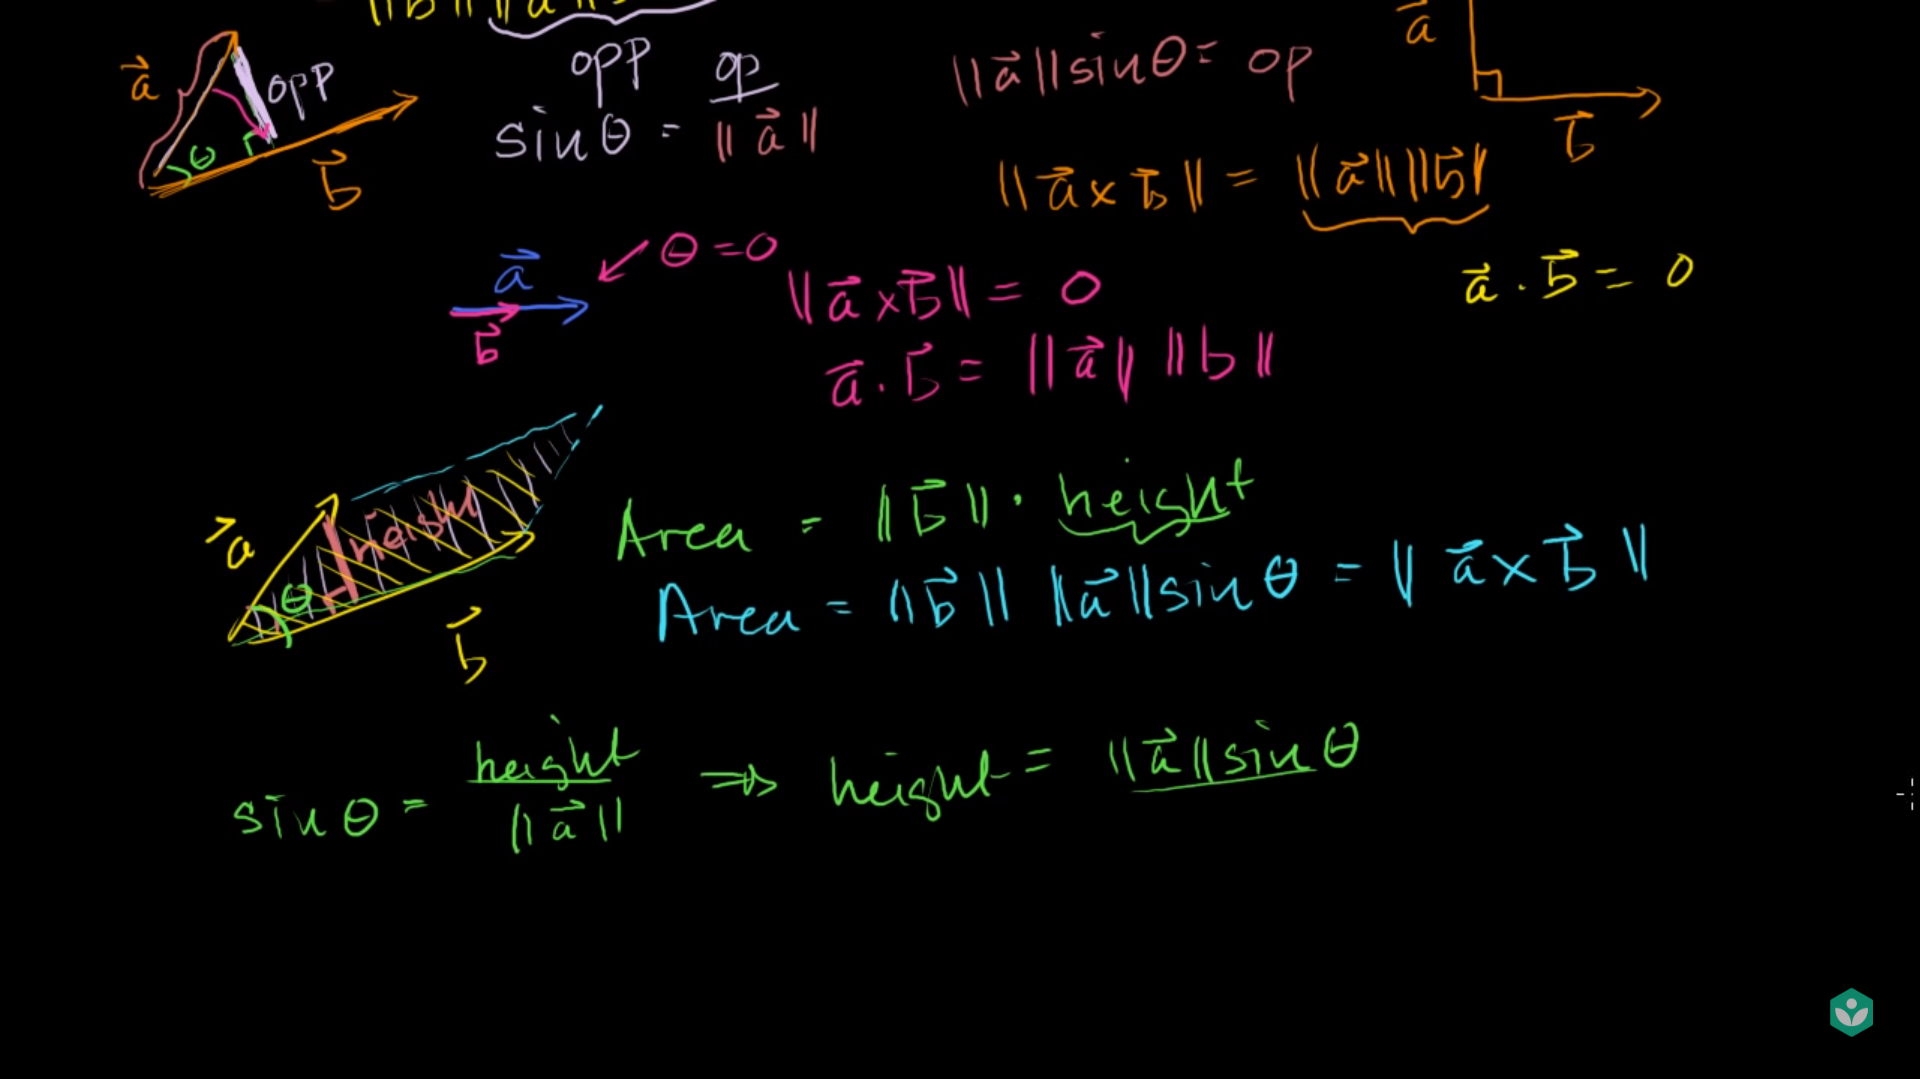 ‖b‖ ‖a‖
a⃗ opp θ b⃗
opp
sin θ = op / ‖a⃗‖
‖a⃗‖ sin θ = op
a⃗
b⃗
‖a⃗ × b⃗‖ = ‖a⃗‖ ‖b⃗‖
a⃗ · b⃗ = 0
a⃗
b⃗
θ = 0
‖a⃗ × b⃗‖ = 0
a⃗ · b⃗ = ‖a⃗‖ ‖b‖
a⃗ height θ b⃗
Area = ‖b⃗‖ · height
Area = ‖b⃗‖ ‖a⃗‖ sin θ = ‖a⃗ × b⃗‖
sin θ = height / ‖a⃗‖ ⇒ height = ‖a⃗‖ sin θ